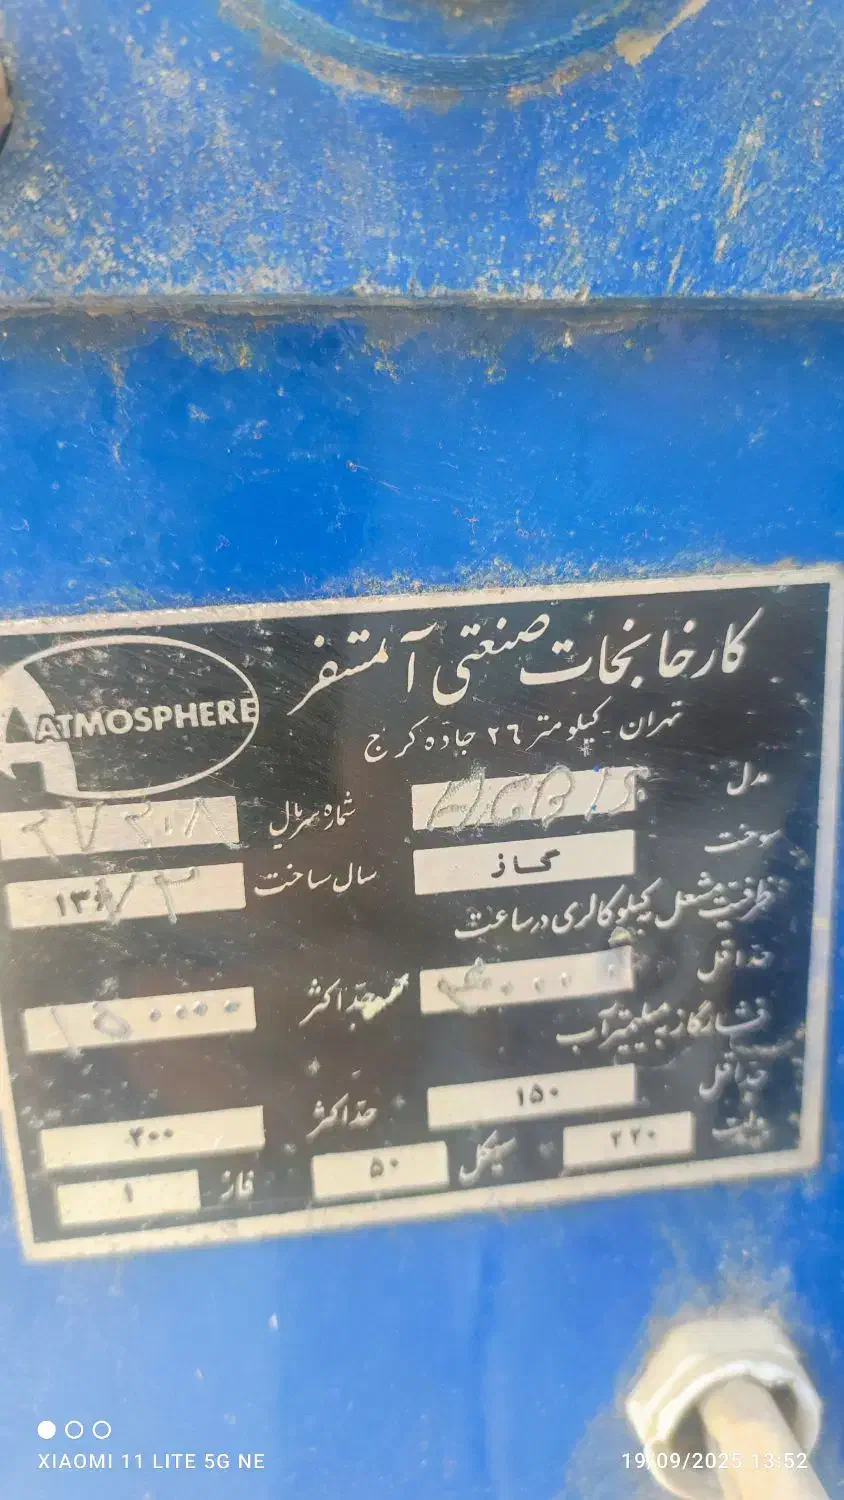 کارخانجات صنعتی آتمسفر
ATMOSPHERE
تهران - کیلومتر ٢٦ جاده کرج
مدل HGB 15 شماره سریال
سوخت گاز سال ساخت
ظرفیت مشعل به کیلوکالری در ساعت
حداقل حداکثر ۱۵۰۰۰۰
فشار گاز به میلیمتر آب
حداقل ۱۵۰ حداکثر ۴۰۰
ولت ۲۲۰ سیکل ۵۰ فاز ۱
XIAOMI 11 LITE 5G NE
19/09/2025 13:52